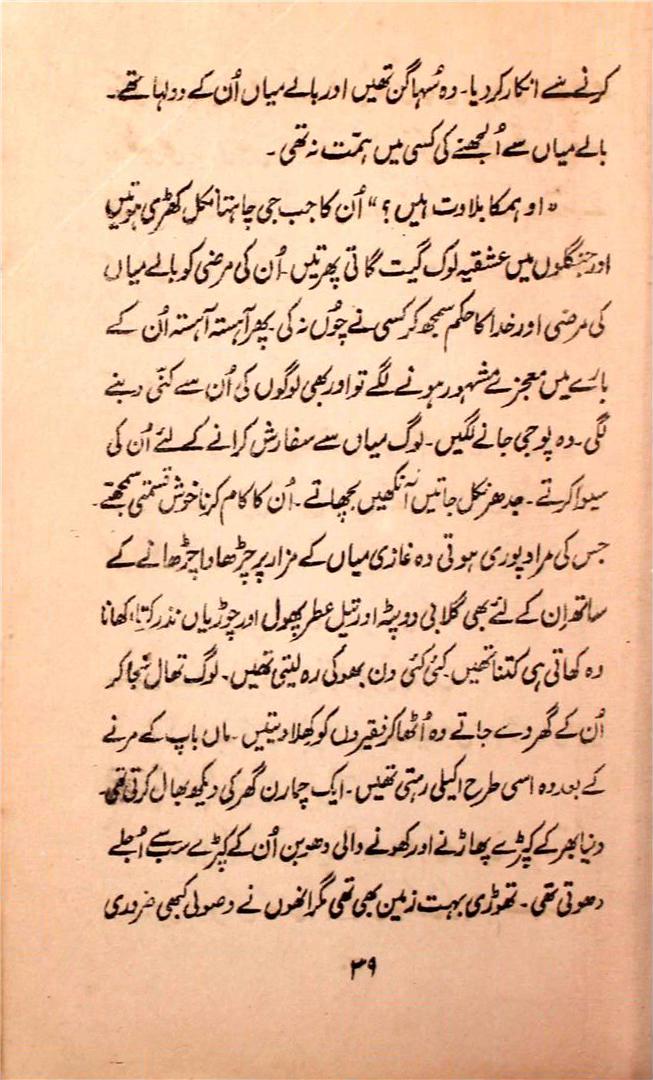 کرنے سے انکار کر دیا۔ وہ سُہاگن تھیں اور بالے میاں اُن کے دولہا تھے۔
بالے میاں سے اُلجھنے کی کسی میں ہمّت نہ تھی۔
"او ہمکا بلاوت ہیں؟" اُن کا جب جی چاہتا نکل کھڑی ہوتیں
اور جنگلوں میں عشقیہ لوک گیت گاتی پھرتیں۔ اُن کی مرضی کو بالے میاں
کی مرضی اور خدا کا حکم سمجھ کر کسی نے چُوں نہ کی۔ پھر آہستہ آہستہ اُن کے
بارے میں معجزے مشہور ہونے لگے تو اور بھی لوگوں کی اُن سے کنّی دبنے
لگی۔ وہ پوجی جانے لگیں۔ لوگ میاں سے سفارش کرانے کے لئے اُن کی
سیوا کرتے۔ جدھر نکل جاتیں آنکھیں بچھاتے۔ اُن کا کام کرنا خوش قسمتی سمجھتے۔
جس کی مراد پوری ہوتی وہ غازی میاں کے مزار پر چڑھاوا چڑھانے کے
ساتھ اِن کے لئے بھی گلابی دوپٹہ اور تیل عطر پھول اور چوڑیاں نذر کرتا، کھانا
وہ کھاتی ہی کتنا تھیں۔ کئی کئی دن بھوکی رہ لیتی تھیں۔ لوگ تھال سَجا کر
اُن کے گھر دے جاتے وہ اُٹھا کر فقیروں کو کھلا دیتیں۔ ماں باپ کے مرنے
کے بعد وہ اسی طرح اکیلی رہتی تھیں۔ ایک چمارن گھر کی دیکھ بھال کرتی تھی۔
دنیا بھر کے کپڑے پھاڑنے اور کھونے والی دھوبن اُن کے کپڑے سب سے اُجلے
دھوتی تھی۔ تھوڑی بہت زمین بھی تھی مگر انھوں نے وصولی کبھی ضروری
۳۹